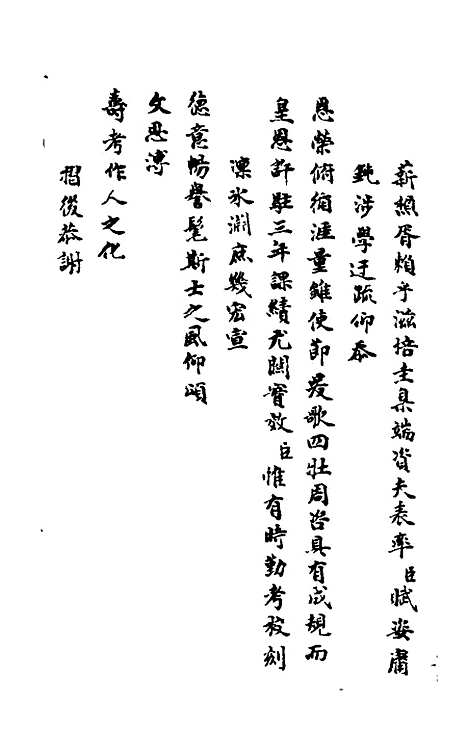 薪槱胥賴乎滋培圭臬端資夫表率臣賦姿庸
鈍涉學迂疏仰忝
恩榮俯循涯量雖使節爰歌四牡周咨具有成規而
皇恩許駐三年課績尤關實效臣惟有時勤考校刻
凜冰淵庶幾宏宣
德意暢譽髦斯士之風仰頌
文思溥
壽考作人之化
摺後恭謝